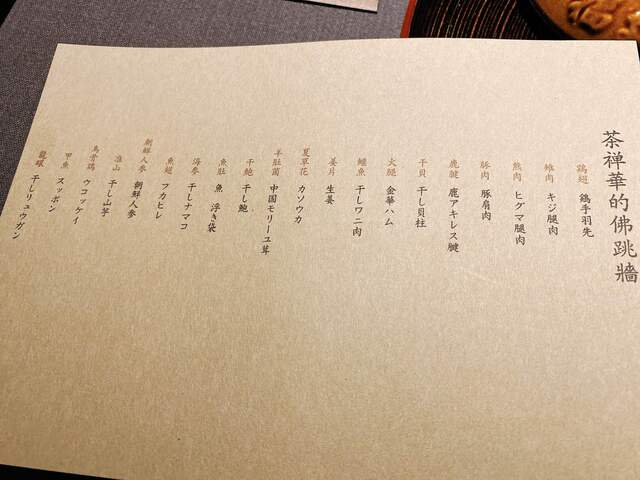 茶禅華的佛跳牆
鶏翅 鶏手羽先
雉肉 キジ腿肉
熊肉 ヒグマ腿肉
豚肉 豚肩肉
鹿腱 鹿アキレス腱
干貝 干し貝柱
火腿 金華ハム
鱷魚 干しワニ肉
姜片 生姜
夏草花 カソウカ
羊肚菌 中国モリーユ茸
干鮑 干し鮑
魚肚 魚 浮き袋
海参 干しナマコ
魚翅 フカヒレ
朝鮮人参 朝鮮人参
淮山 干し山芋
烏骨鶏 ウコッケイ
甲魚 スッポン
龍眼 干しリュウガン